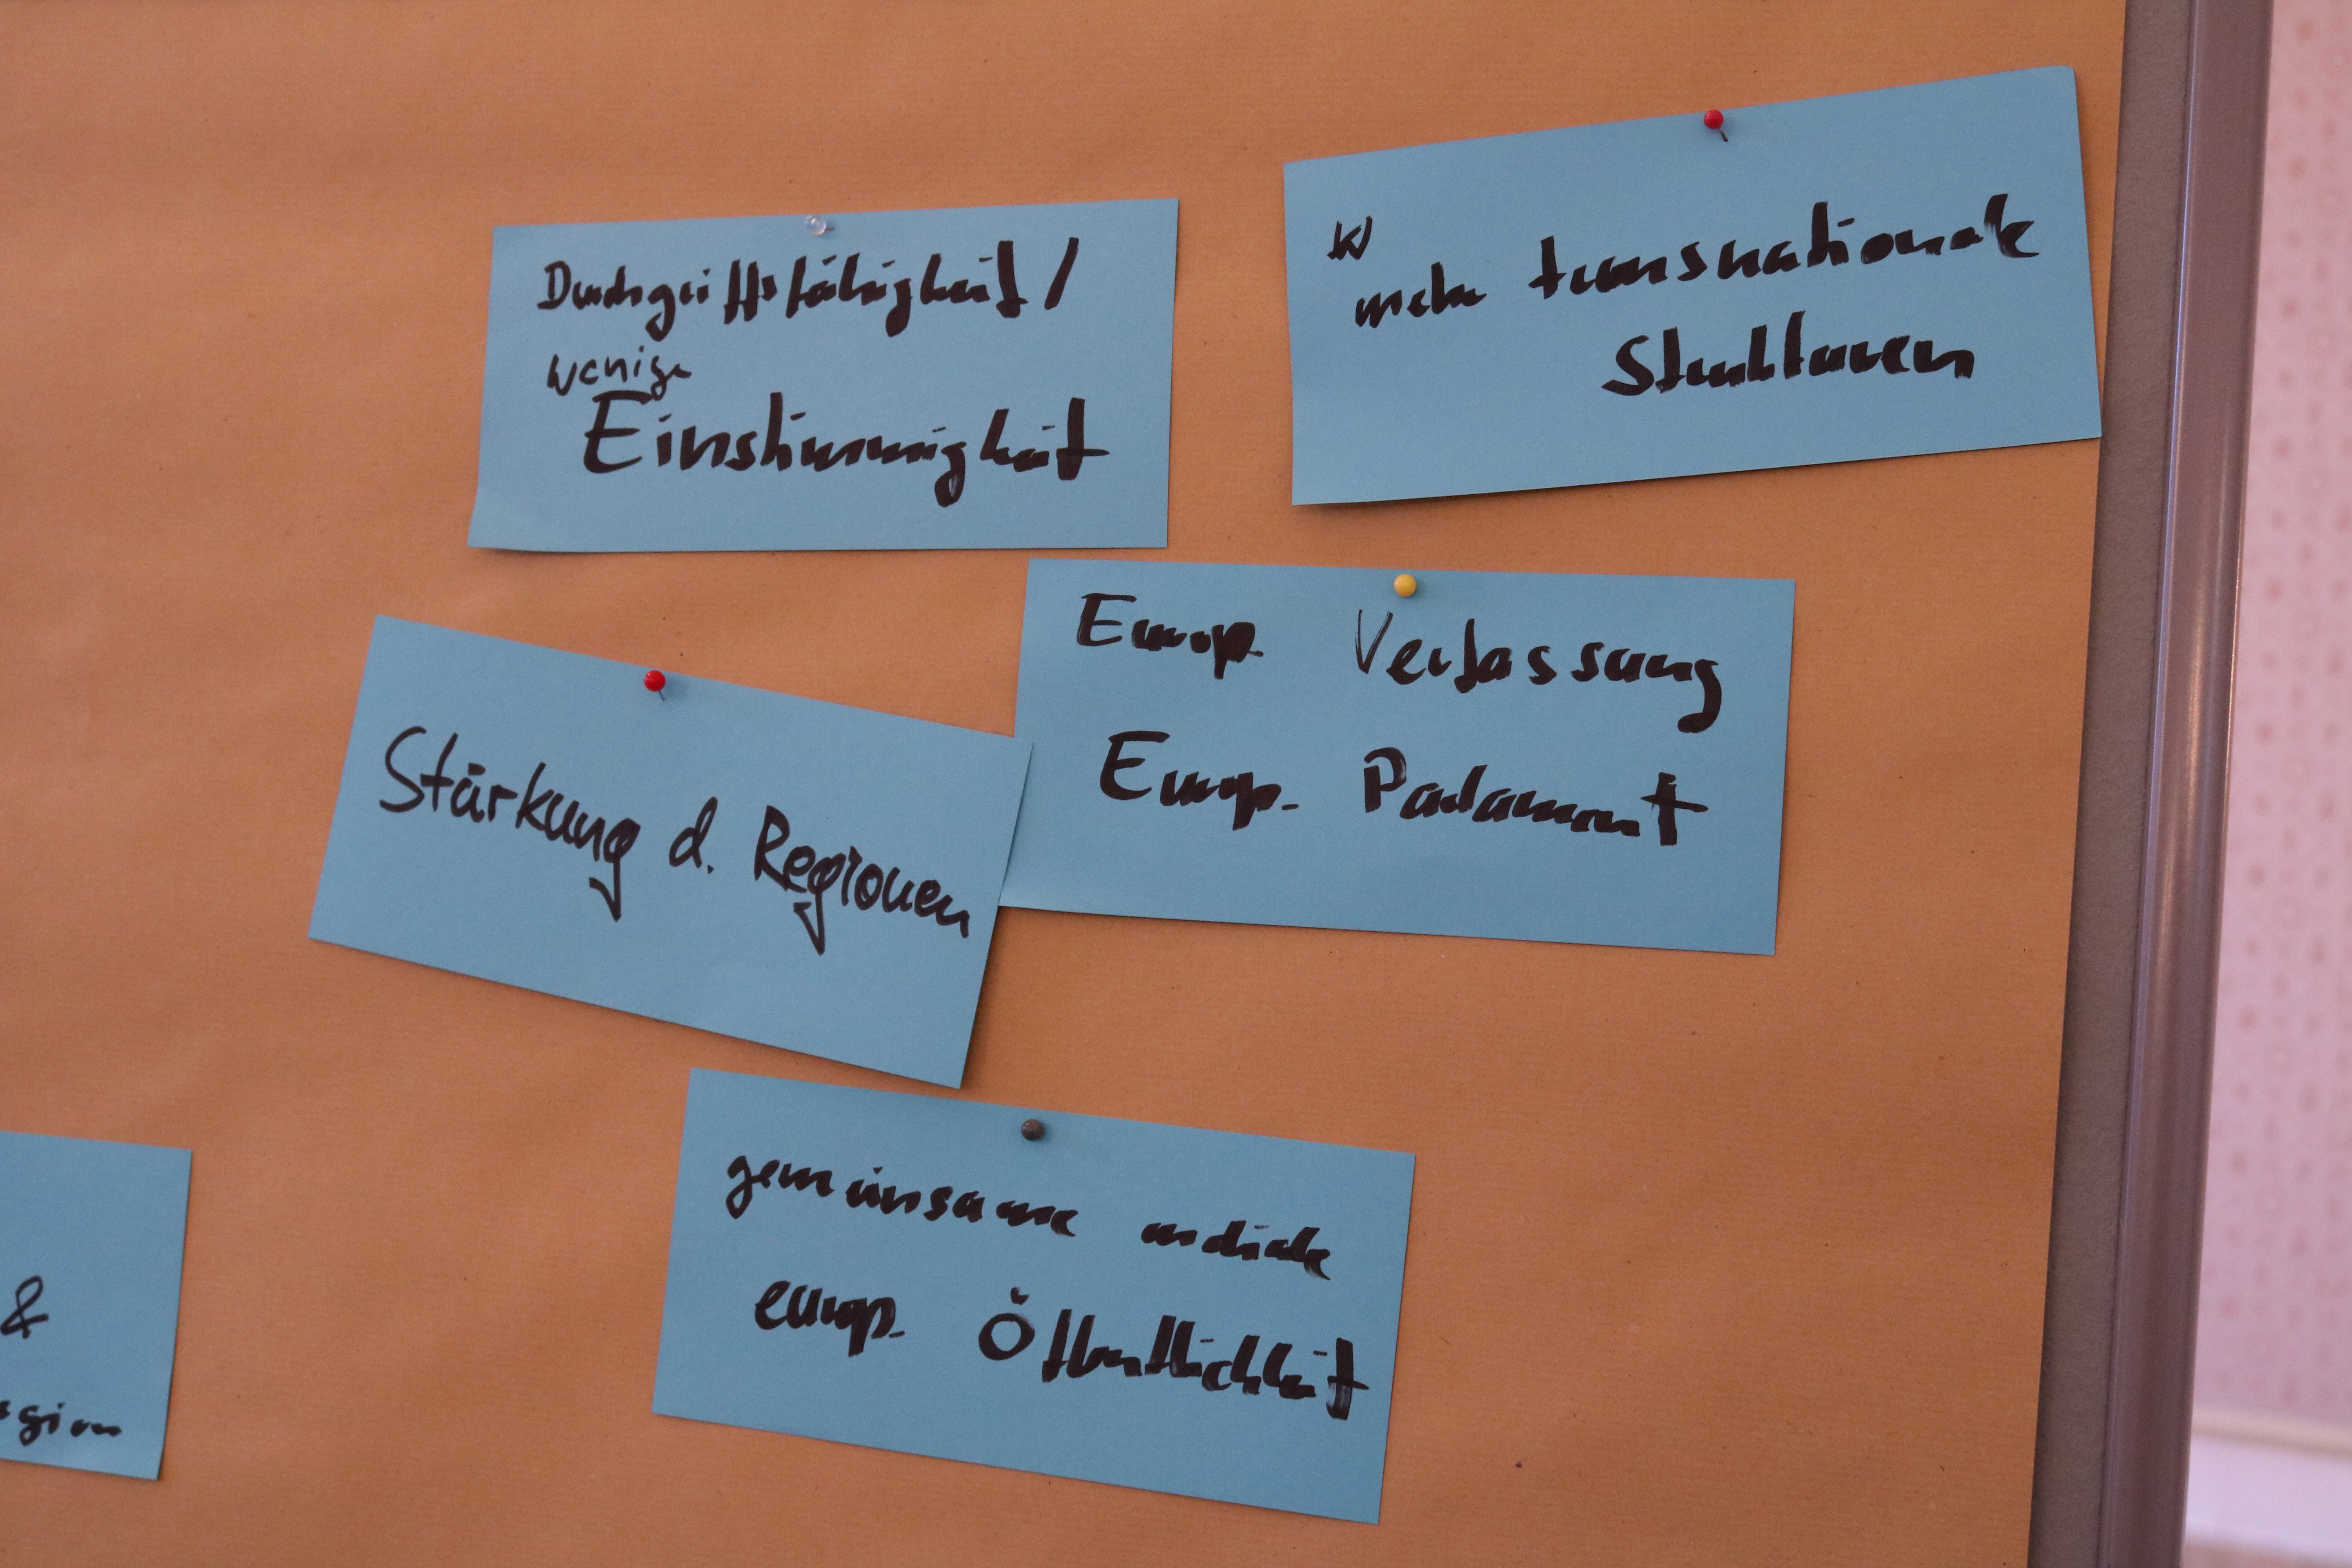 Durchgriffsfähigkeit /
weniger
Einstimmigkeit
W
mehr transnationale
Strukturen
Europ. Verfassung
Europ. Parlament
Stärkung d. Regionen
gemeinsame mediale
europ. Öffentlichkeit
&